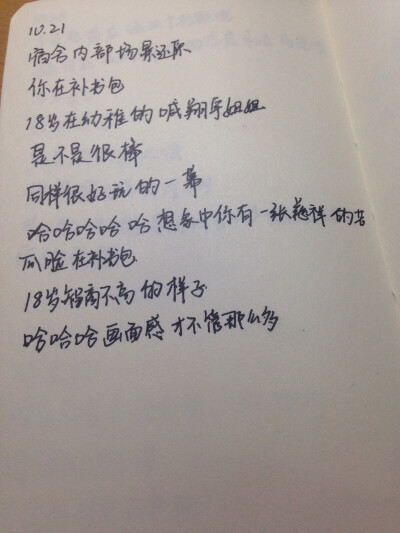 10.21
宿舍内部场景还原
你在补书包
18岁在幼稚的喊翔宇姐姐
是不是很棒
同样很好玩的一幕
哈哈哈哈哈想象中你有一张慈祥的苦
瓜脸在补书包
18岁智商不高的样子
哈哈哈画面感才不管那么多